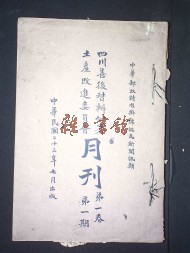 中華郵政特准掛號認爲新聞紙類
四川善後督辦署
土產改進委員會
月刊
第一卷
第一期
中華民國二十三年七月出版